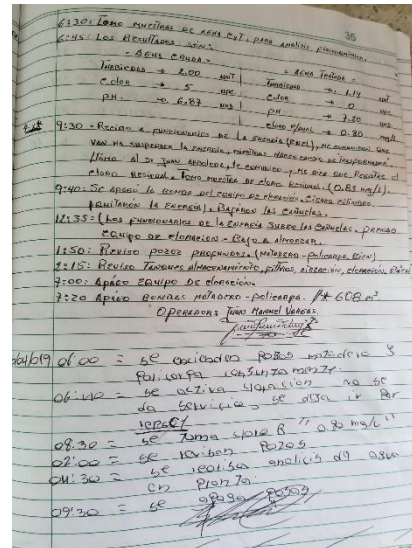 35
6:30: Tomo muestras de agua C y T, para analisis fisicoquimico.
6:45: Los Resultados son:
= Agua Cruda = = Agua Tratada =
Turbiedad → 2,00 UNT Turbiedad → 1.14 UNT
Color → 5 UPC Color → 0 UPC
pH → 6,87 UND pH → 7.30 UND
Cloro → 0.80
9:30 - Recibo a funcionarios de la energía (ENEL), me comunican que
van ha suspender la energía, mientras hacen cambio de transformador
llamo al Sr Juan , le comunico y me dice que
cloro Residual. Tomo muestra de cloro Residual. (0.83 mg/L).
9:40: Se apagó la bomba del equipo de cloración. Cierro cilindro.
(quitaron la energía). Bajaron las cañuelas.
12:35: (Los funcionarios de la energía suben las cañuelas. prendo
equipo de cloración - Bajo a almorzar.
1:50: Reviso pozos profundos. (Matadero - policarpa. Bien)
2:15: Reviso tanques almacenamiento, filtros, aireación, cloración,
7:00: Apago equipo de cloración.
7:20 Apago Bombas matadero - policarpa. 608 m³
Operador: Juan Manuel Vargas.
06:00 = se pozos matadero y
policarpa
06:40 = se activa cloracion no se
da servicio, se por
08:30 = se toma cloro R " 0.80 mg/L "
02:00 = se revisan pozos
04:30 = se realisa analicis de agua
en planta.
09:30 = se apaga pozos